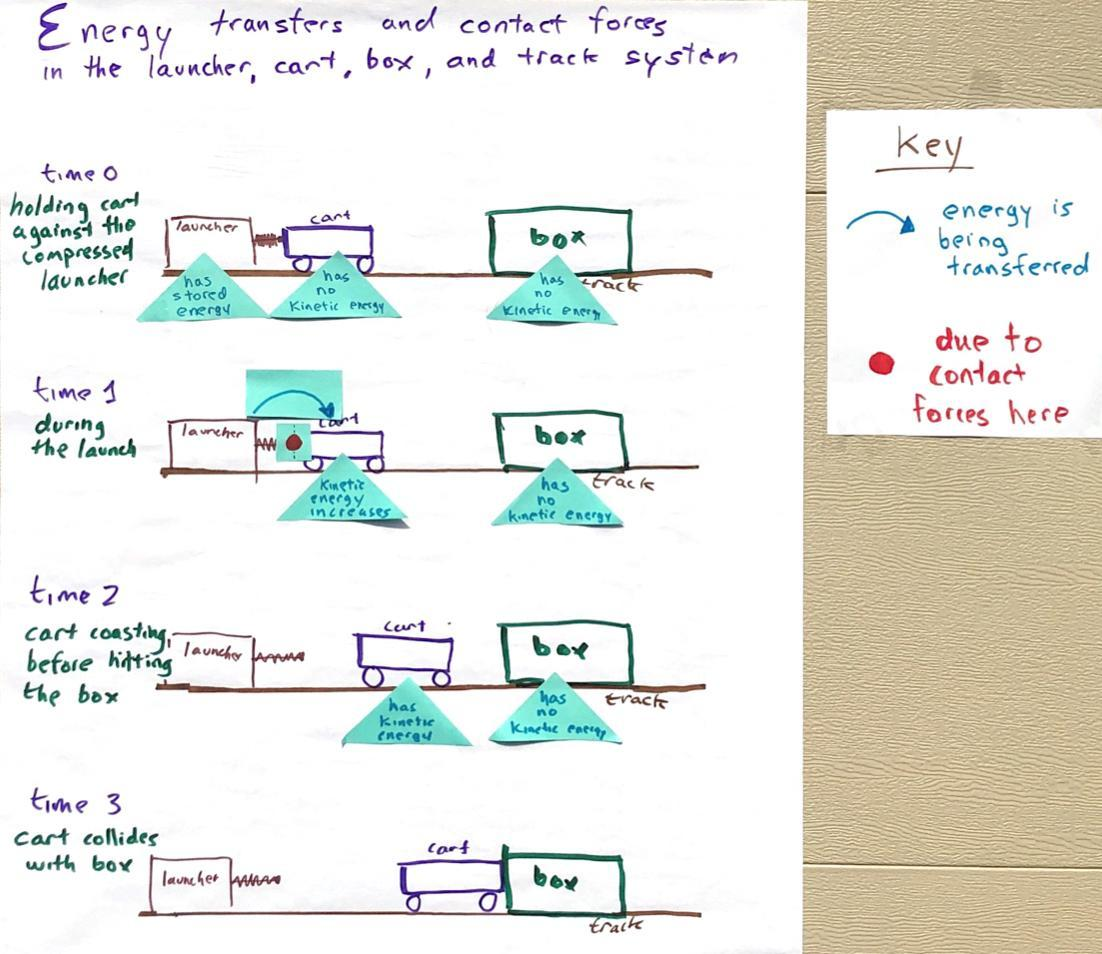 Energy transfers and contact forces
in the launcher, cart, box, and track system
time 0
holding cart
against the
compressed
launcher
launcher
cart
box
track
has
stored
energy
has
no
Kinetic energy
has
no
Kinetic energy
time 1
during
the launch
launcher
cart
box
track
Kinetic
energy
increases
has
no
kinetic energy
time 2
cart coasting,
before hitting
the box
launcher
cart
box
track
has
Kinetic
energy
has
no
Kinetic energy
time 3
cart collides
with box
launcher
cart
box
track
Key
energy is
being
transferred
due to
contact
forces here